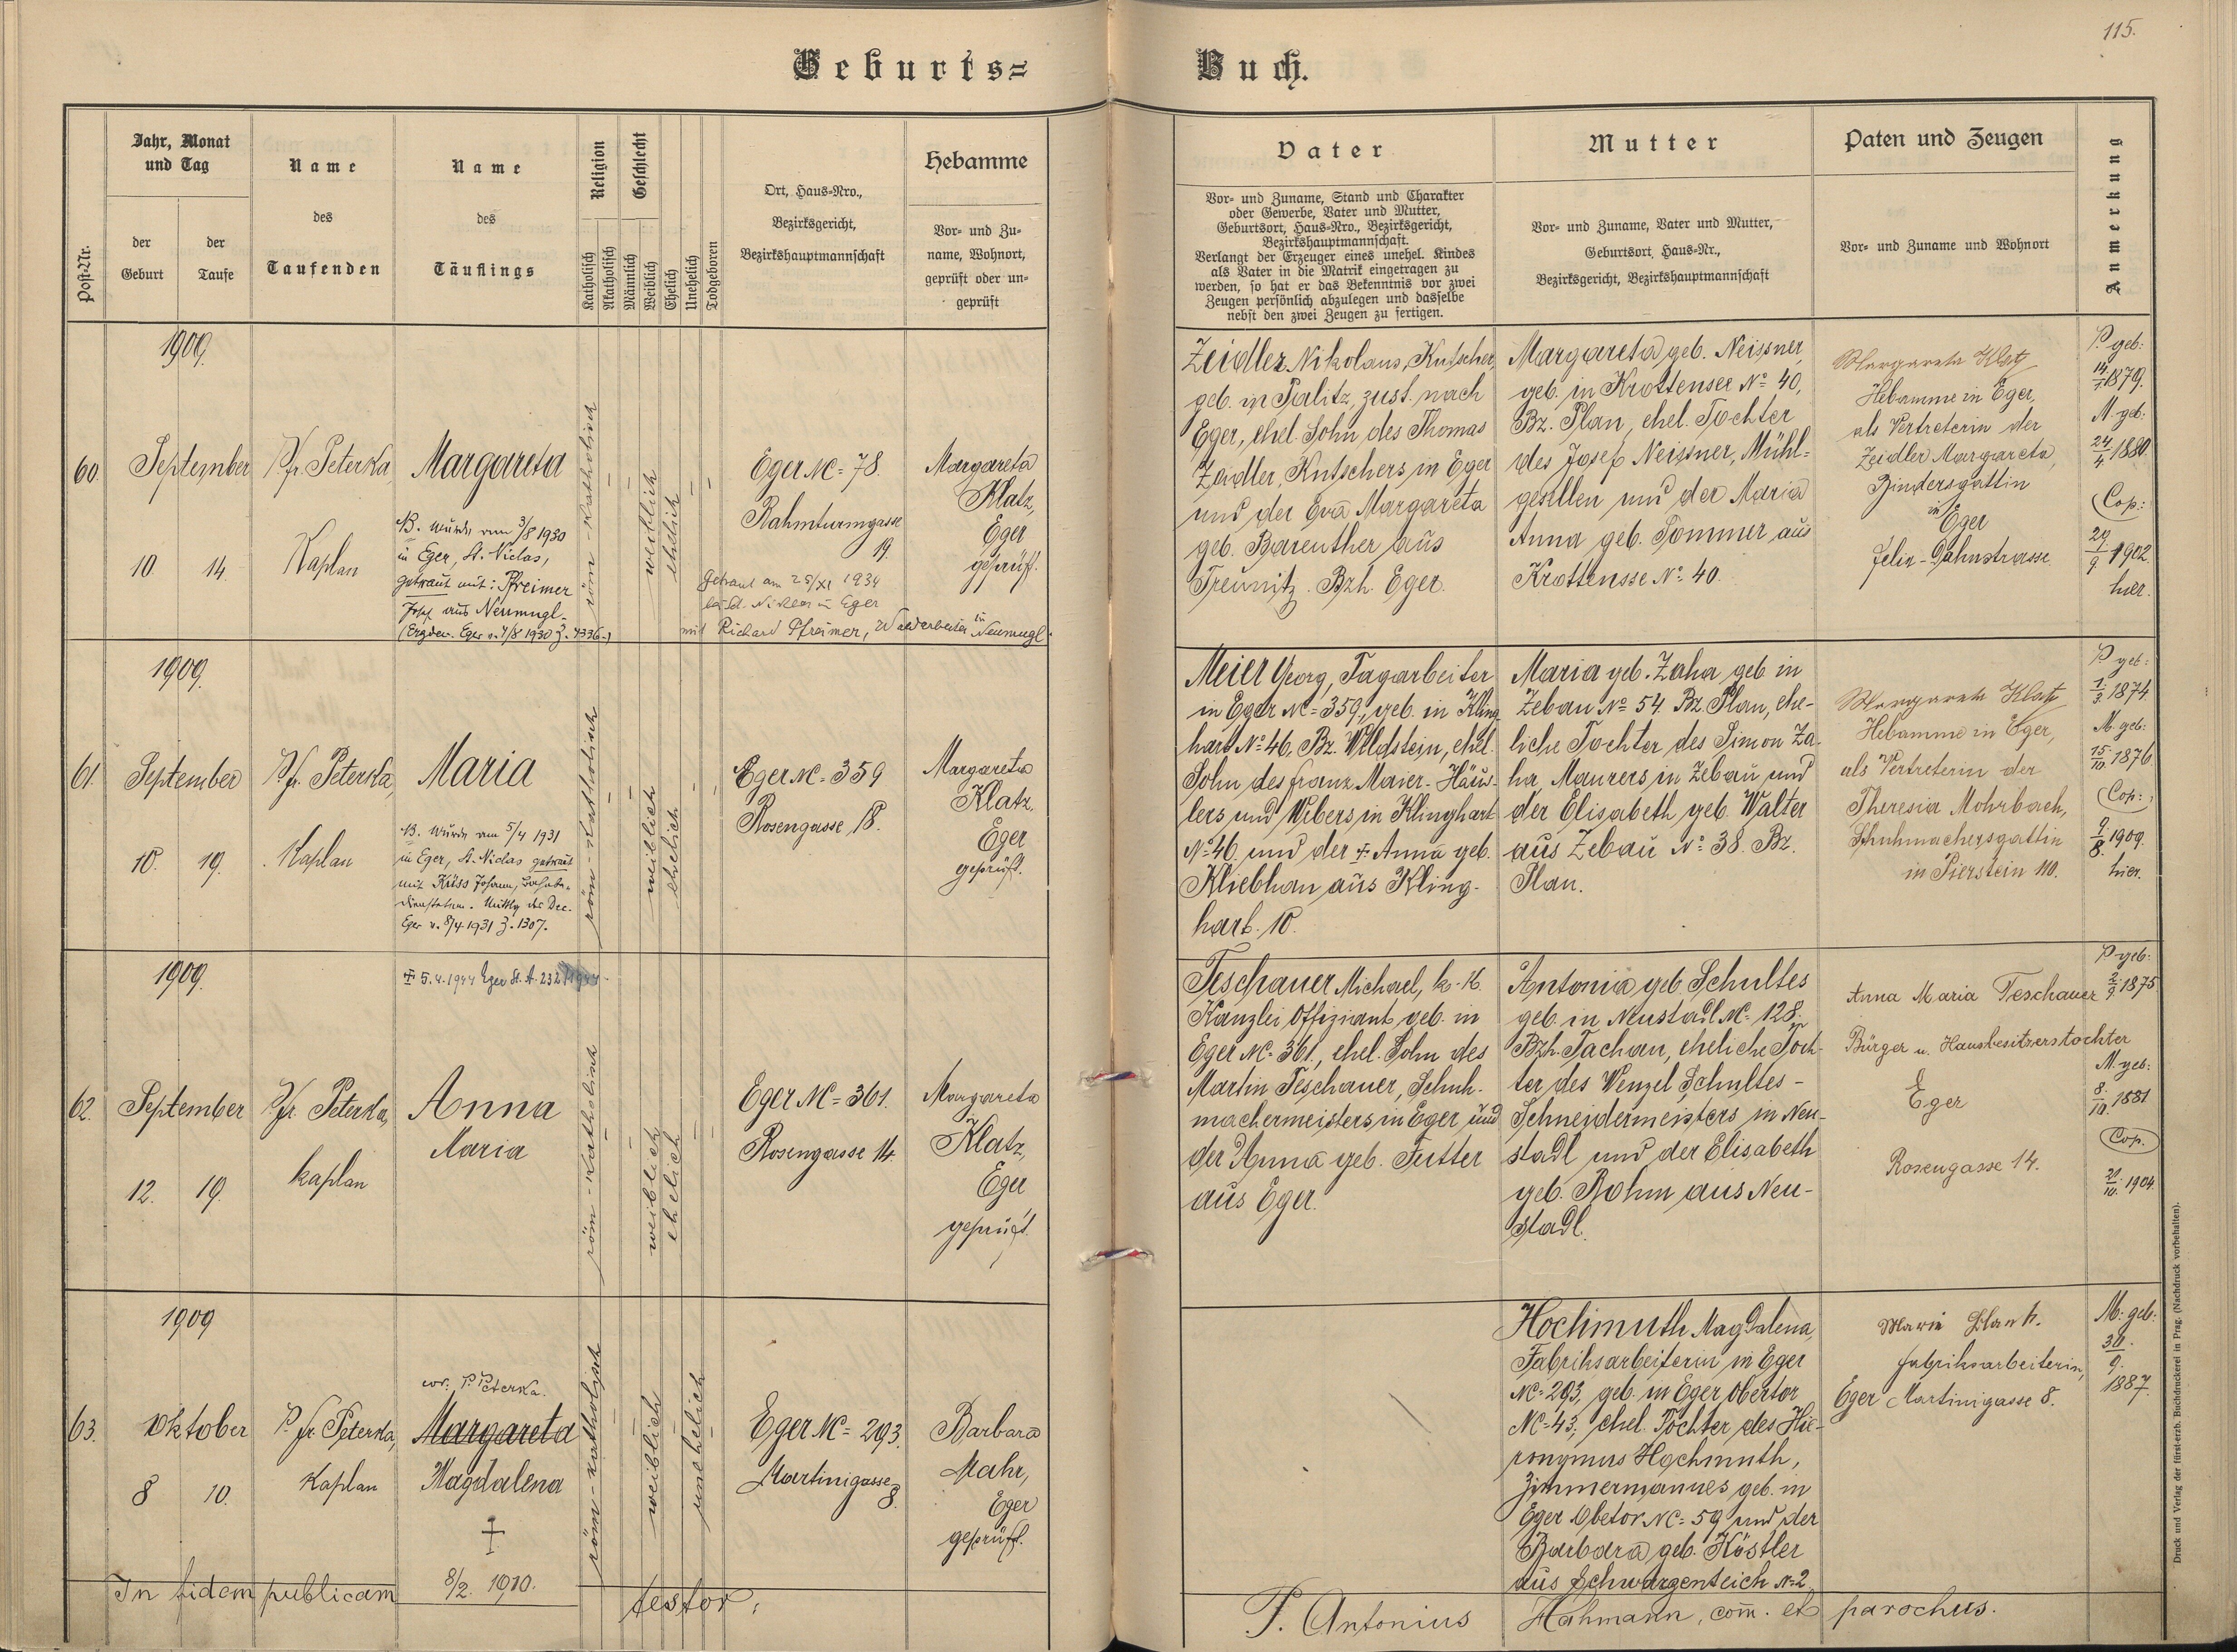 115.
Geburts=
Buch.
Post-Nr.
Jahr, Monat
und Tag
der
Geburt
der
Taufe
Name
des
Taufenden
Name
des
Täuflings
Religion
Katholisch
Akatholisch
Geschlecht
Männlich
Weiblich
Ehelich
Unehelich
Todgeboren
Ort, Haus-Nro.,
Bezirksgericht,
Bezirkshauptmannschaft
Hebamme
Vor- und Zu-
name, Wohnort,
geprüft oder un-
geprüft
Vater
Vor- und Zuname, Stand und Charakter
oder Gewerbe, Vater und Mutter,
Geburtsort, Haus-Nro., Bezirksgericht,
Bezirkshauptmannschaft.
Verlangt der Erzeuger eines unehel. Kindes
als Vater in die Matrik eingetragen zu
werden, so hat er das Bekenntnis vor zwei
Zeugen persönlich abzulegen und dasselbe
nebst den zwei Zeugen zu fertigen.
Mutter
Vor- und Zuname, Vater und Mutter,
Geburtsort, Haus-Nr.,
Bezirksgericht, Bezirkshauptmannschaft
Paten und Zeugen
Vor- und Zuname und Wohnort
Anmerkung
1909.
60.
September
10 14.
P. fr. Peterka,
Kaplan
Margareta
NB. wurde am 3/8 1930
in Eger, St. Niclas,
getraut mit: Pfreimer
Josef aus Neumugl.
(Erzdec. Eger v. 4/8 1930 Z. 4336.)
röm-katholisch
weiblich
ehelich
Eger NC= 78.
Rahmturmgasse
19.
Getraut am 25/XI 1934
bei St. Niklas in Eger
mit Richard Pfreimer, Waldarbeiter in Neumugl.
Margareta
Klatz,
Eger
geprüft.
Zeidler Nikolaus, Kutscher,
geb. in Palitz, zust. nach
Eger, ehel. Sohn des Thomas
Zeidler, Kutschers in Eger
und der Eva Margareta
geb. Bareuther aus
Treunitz. Bzh. Eger.
Margareta geb. Neissner,
geb. in Krottensee No 40,
Bz. Plan, ehel. Tochter
des Josef Neissner, Mühl=
gesellen und der Maria
Anna geb. Sommer aus
Krottensse No 40.
Margareta Klatz
Hebamme in Eger,
als Vertreterin der
Zeidler Margareta,
Bindersgattin
in Eger
Felix-Dahnstrasse.
P. geb:
14/7 1879.
M. geb:
24/4 1880.
Cop.:
29/9 1902.
hier.
1909.
61.
September
10. 19.
P. fr. Peterka,
Kaplan
Maria
NB. Wurde am 5/4 1931
in Eger, St. Niclas getraut
mit Krüss Johann, Bahnbe-
dienstetem. Mittlg des Dec.
Eger v. 8/4 1931 Z. 1307.
röm-katholisch
weiblich
ehelich
Eger NC= 359
Rosengasse 18.
Margareta
Klatz,
Eger
geprüft.
Meier Georg, Tagarbeiter
in Eger NC= 359., geb. in Kling-
hart No 46, Bz. Wildstein, ehel.
Sohn des Franz Maier-Häus-
lers und Webers in Klinghart
No 46 und der + Anna geb.
Kliebhan aus Kling-
hart. 10.
Maria geb. Zaha geb. in
Zebau No 54. Bz. Plan, ehe-
liche Tochter des Simon Za-
ha, Maurers in Zebau und
der Elisabeth geb. Walter
aus Zebau No 38. Bz.
Plan.
Margareta Klatz
Hebamme in Eger,
als Vertreterin der
Theresia Mohrbach,
Schuhmachersgattin
in Pierstein 110.
P. geb:
1/3 1874.
M. geb:
15/10. 1876
Cop.:
9/8. 1909.
hier.
1909.
62.
September
12. 19.
P. fr. Peterka,
Kaplan
+ 5.4.1944 Eger St. A. 232/1944.
Anna
Maria
röm-katholisch
weiblich
ehelich
Eger NC= 361.
Rosengasse 14.
Margareta
Klatz,
Eger
geprüft.
Teschauer Michael, k.k.
Kanzlei Offiziant, geb. in
Eger NC= 361., ehel. Sohn des
Martin Teschauer, Schuh-
machermeisters in Eger und
der Anna geb. Futter
aus Eger.
Antonia geb. Schultes
geb. in Neustadl NC= 128.
Bzh. Tachau, eheliche Toch-
ter des Wenzel Schultes-
Schneidermeisters in Neu-
stadl und der Elisabeth
geb. Böhm aus Neu-
stadl.
Anna Maria Teschauer
Bürger u. Hausbesitzerstochter
Eger
Rosengasse 14.
P. geb:
2/9. 1875
M. geb:
8/10. 1881
Cop.
20/10. 1904.
1909
63.
Oktober
8 10.
P. fr. Peterka,
Kaplan
cor. P. Peterka.
Margareta
Magdalena
+
8/2. 1910.
röm-katholisch
weiblich
unehelich
Eger NC= 293.
Martinigasse
8.
Barbara
Mahr,
Eger
geprüft.
Hochmuth Magdalena,
Fabriksarbeiterin in Eger
NC= 293, geb. in Eger Obertor
NC= 43, ehel. Tochter des Hie-
ronymus Hochmuth,
Zimmermannes geb. in
Eger Obetor NC= 59 und der
Barbara geb. Köstler
aus Schwarzenteich No 2
Marie Plank.
Fabriksarbeiterin,
Eger Martinigasse 8.
M. geb:
30.
9.
1887.
In fidem publicam testor:
P. Antonius Hahmann, com. et parochus.
Druck und Verlag der fürst-erzb. Buchdruckerei in Prag. (Nachdruck vorbehalten).